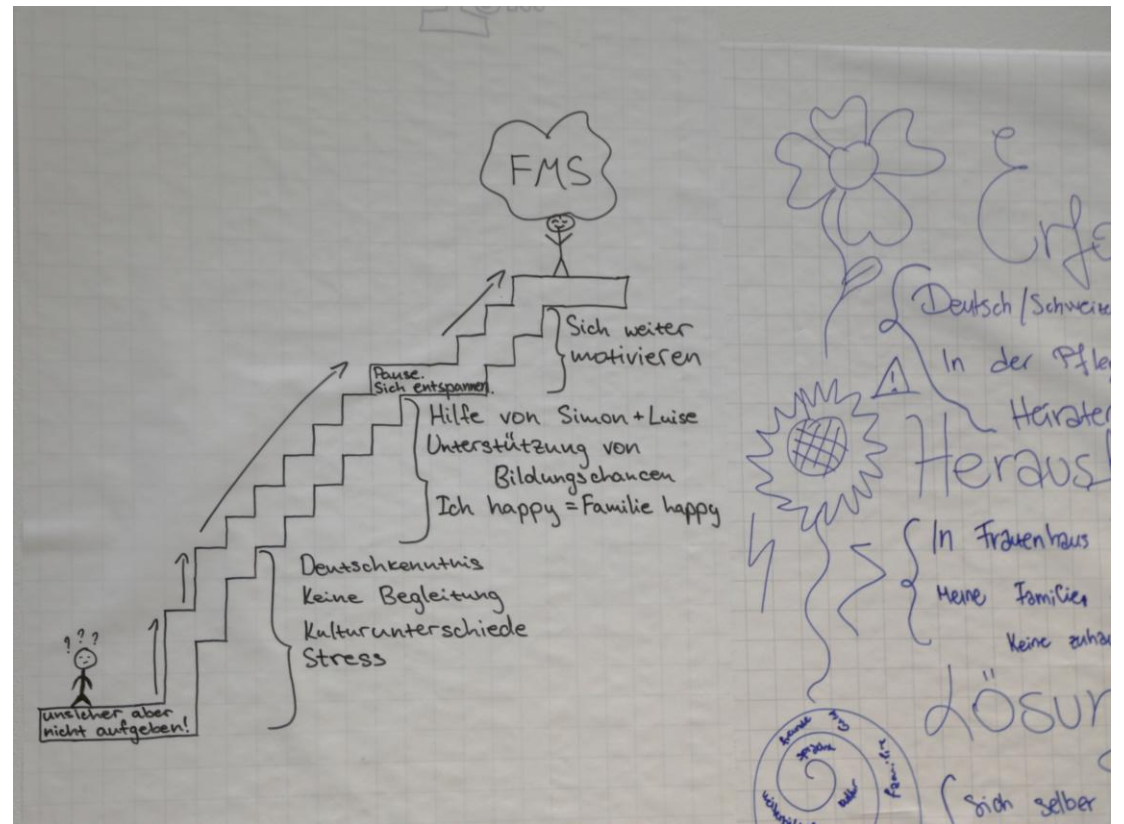 FMS
Sich weiter
motivieren
Pause.
Sich entspannen.
Hilfe von Simon + Luise
Unterstützung von
Bildungschancen
Ich happy = Familie happy
Deutschkenntnis
Keine Begleitung
Kulturunterschiede
Stress
???
unsicher aber
nicht aufgeben!
Erfo
Deutsch / Schweize
!
In der Pfleg
Heiraten
Herausf
In Frauenhaus
Meine Familie,
Keine zuhau
Lösun
Sich selber
Familie